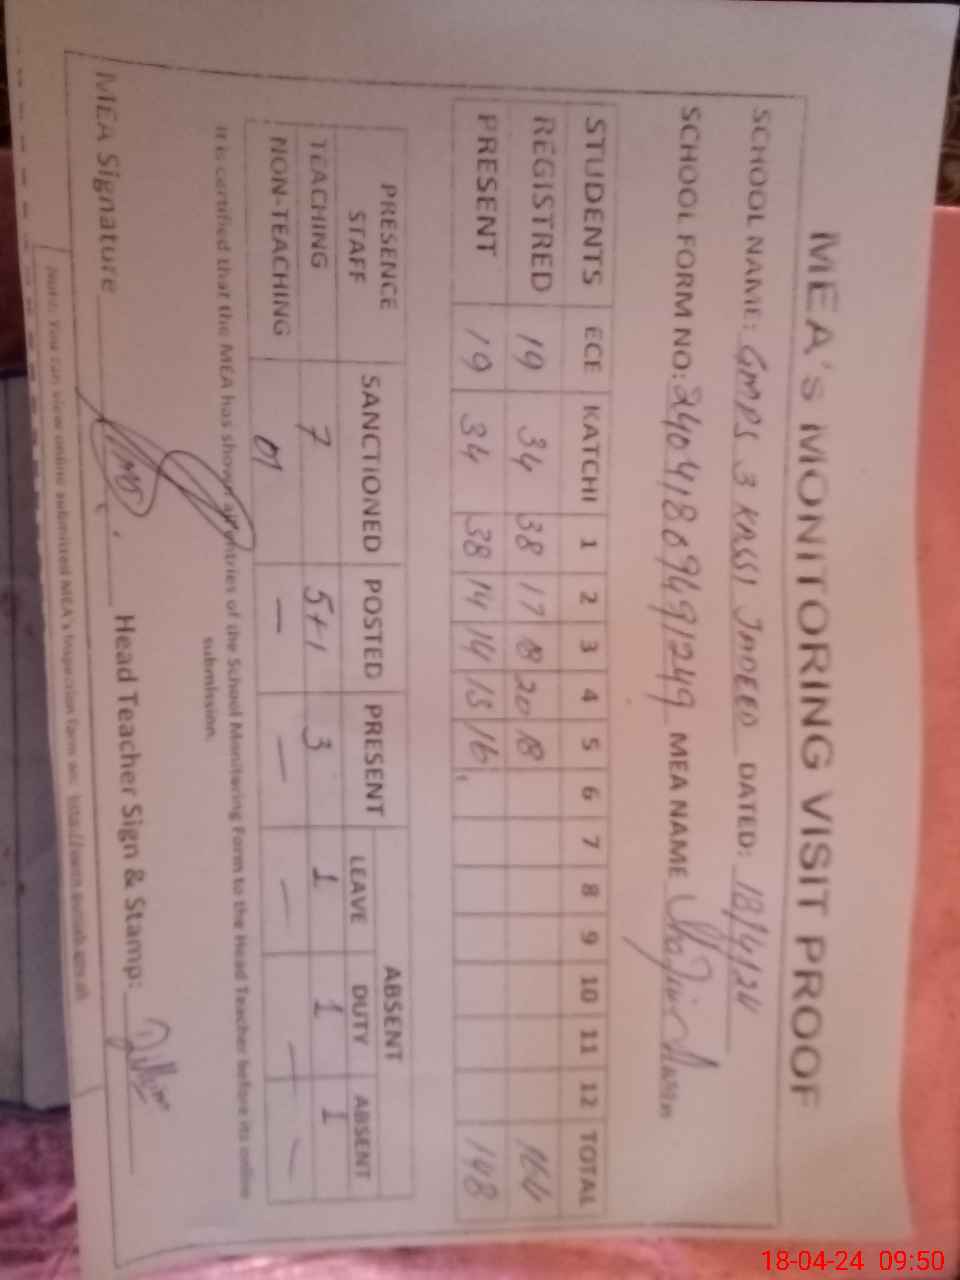 MEA's MONITORING VISIT PROOF
SCHOOL NAME: GMPS 3 KASSI JADEED DATED: 18/4/24
SCHOOL FORM NO: MEA NAME
STUDENTS ECE KATCHI 1 2 3 4 5 6 7 8 9 10 11 12 TOTAL
REGISTRED 19 34 38 17 18 20 18 164
PRESENT 19 34 38 14 14 15 16 148
PRESENCE STAFF SANCTIONED POSTED PRESENT ABSENT
LEAVE DUTY ABSENT
TEACHING 7 5+1 3 1 1 1
NON-TEACHING 01 — — — — —
It is certified that the MEA has shown all entries of the School Monitoring Form to the Head Teacher before its online
submission.
MEA Signature Head Teacher Sign & Stamp:
Note: You can view online submitted MEA's Inspection form at:
18-04-24 09:50